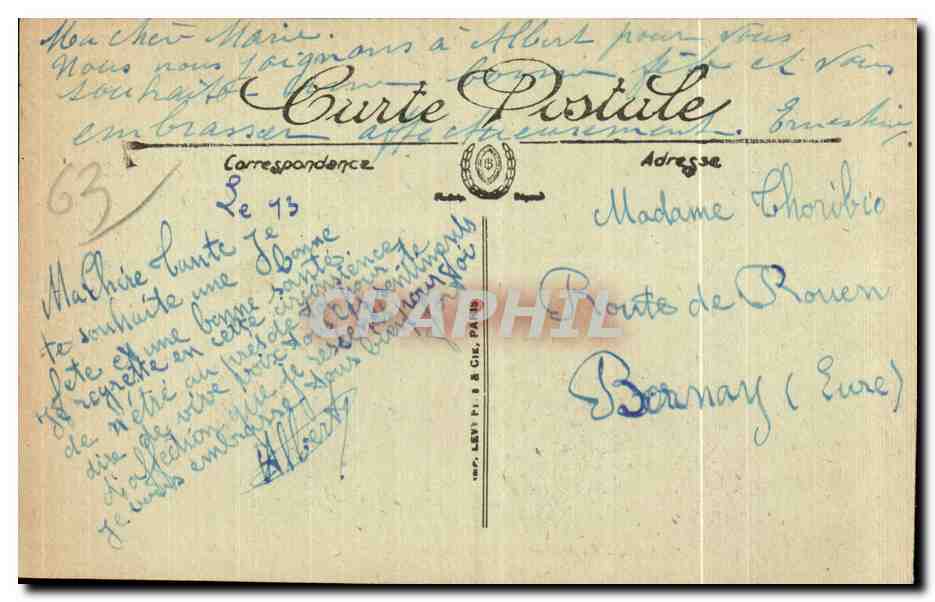 Ma chère Marie.
Nous nous joignons à Albert pour vous
souhaiter une bonne fête et vous
embrasser affectueusement. Ernestine
Carte Postale
Correspondance
Adresse
63
Le 13
Ma Chère Tante Je
te souhaite une bonne
fête et une bonne santé.
Je regrette en cette circonstance
de n'être au près de toi pour
dire de vive voix
d'affection que je ressens pour toi
Je vous embrasse tous bien
Albert
IMP. LEVY Fils & Cie, PARIS
Madame Thoribio
Route de Rouen
Bernay (Eure)
CPAPHIL